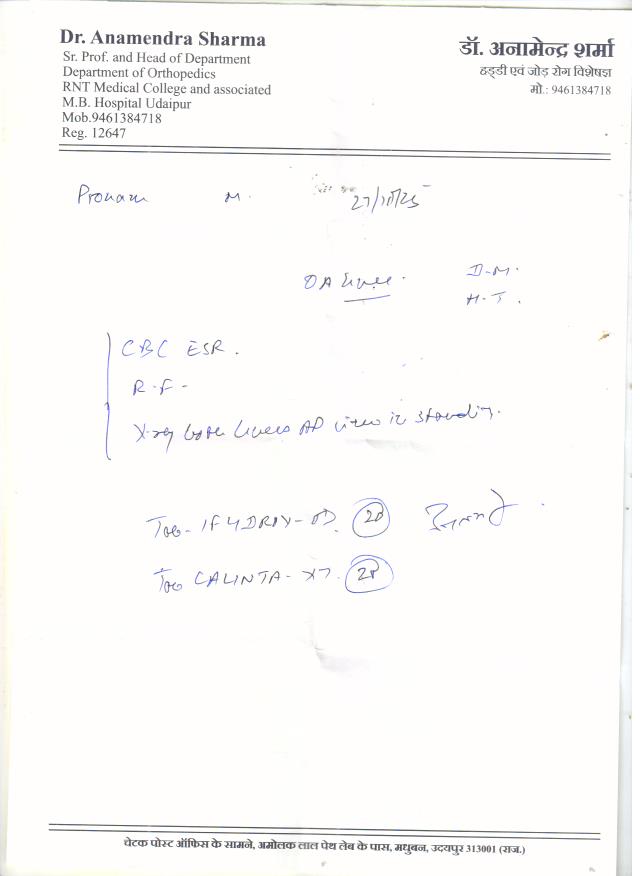 Dr. Anamendra Sharma
Sr. Prof. and Head of Department
Department of Orthopedics
RNT Medical College and associated
M.B. Hospital Udaipur
Mob.9461384718
Reg. 12647
डॉ. अनामेन्द्र शर्मा
हड्डी एवं जोड़ रोग विशेषज्ञ
मो.: 9461384718
M.
OA knee.
D.M.
H.T.
CBC ESR.
R.F-
X-ray both knees AP view in standing.
Tab- OD. 20
Tab CALINTA-XT. 20
चेटक पोस्ट ऑफिस के सामने, अमोलक लाल पेथ लेब के पास, मधुबन, उदयपुर 313001 (राज.)